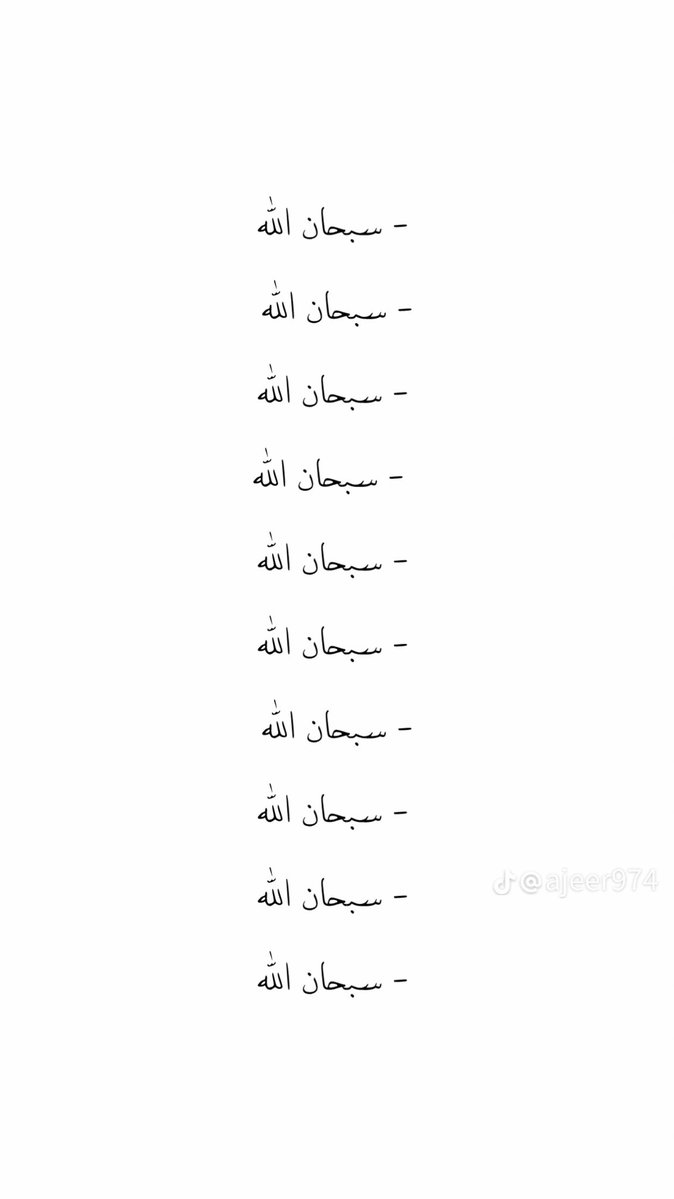 - سبحان الله
- سبحان الله
- سبحان الله
- سبحان الله
- سبحان الله
- سبحان الله
- سبحان الله
- سبحان الله
@ajeer974
- سبحان الله
- سبحان الله